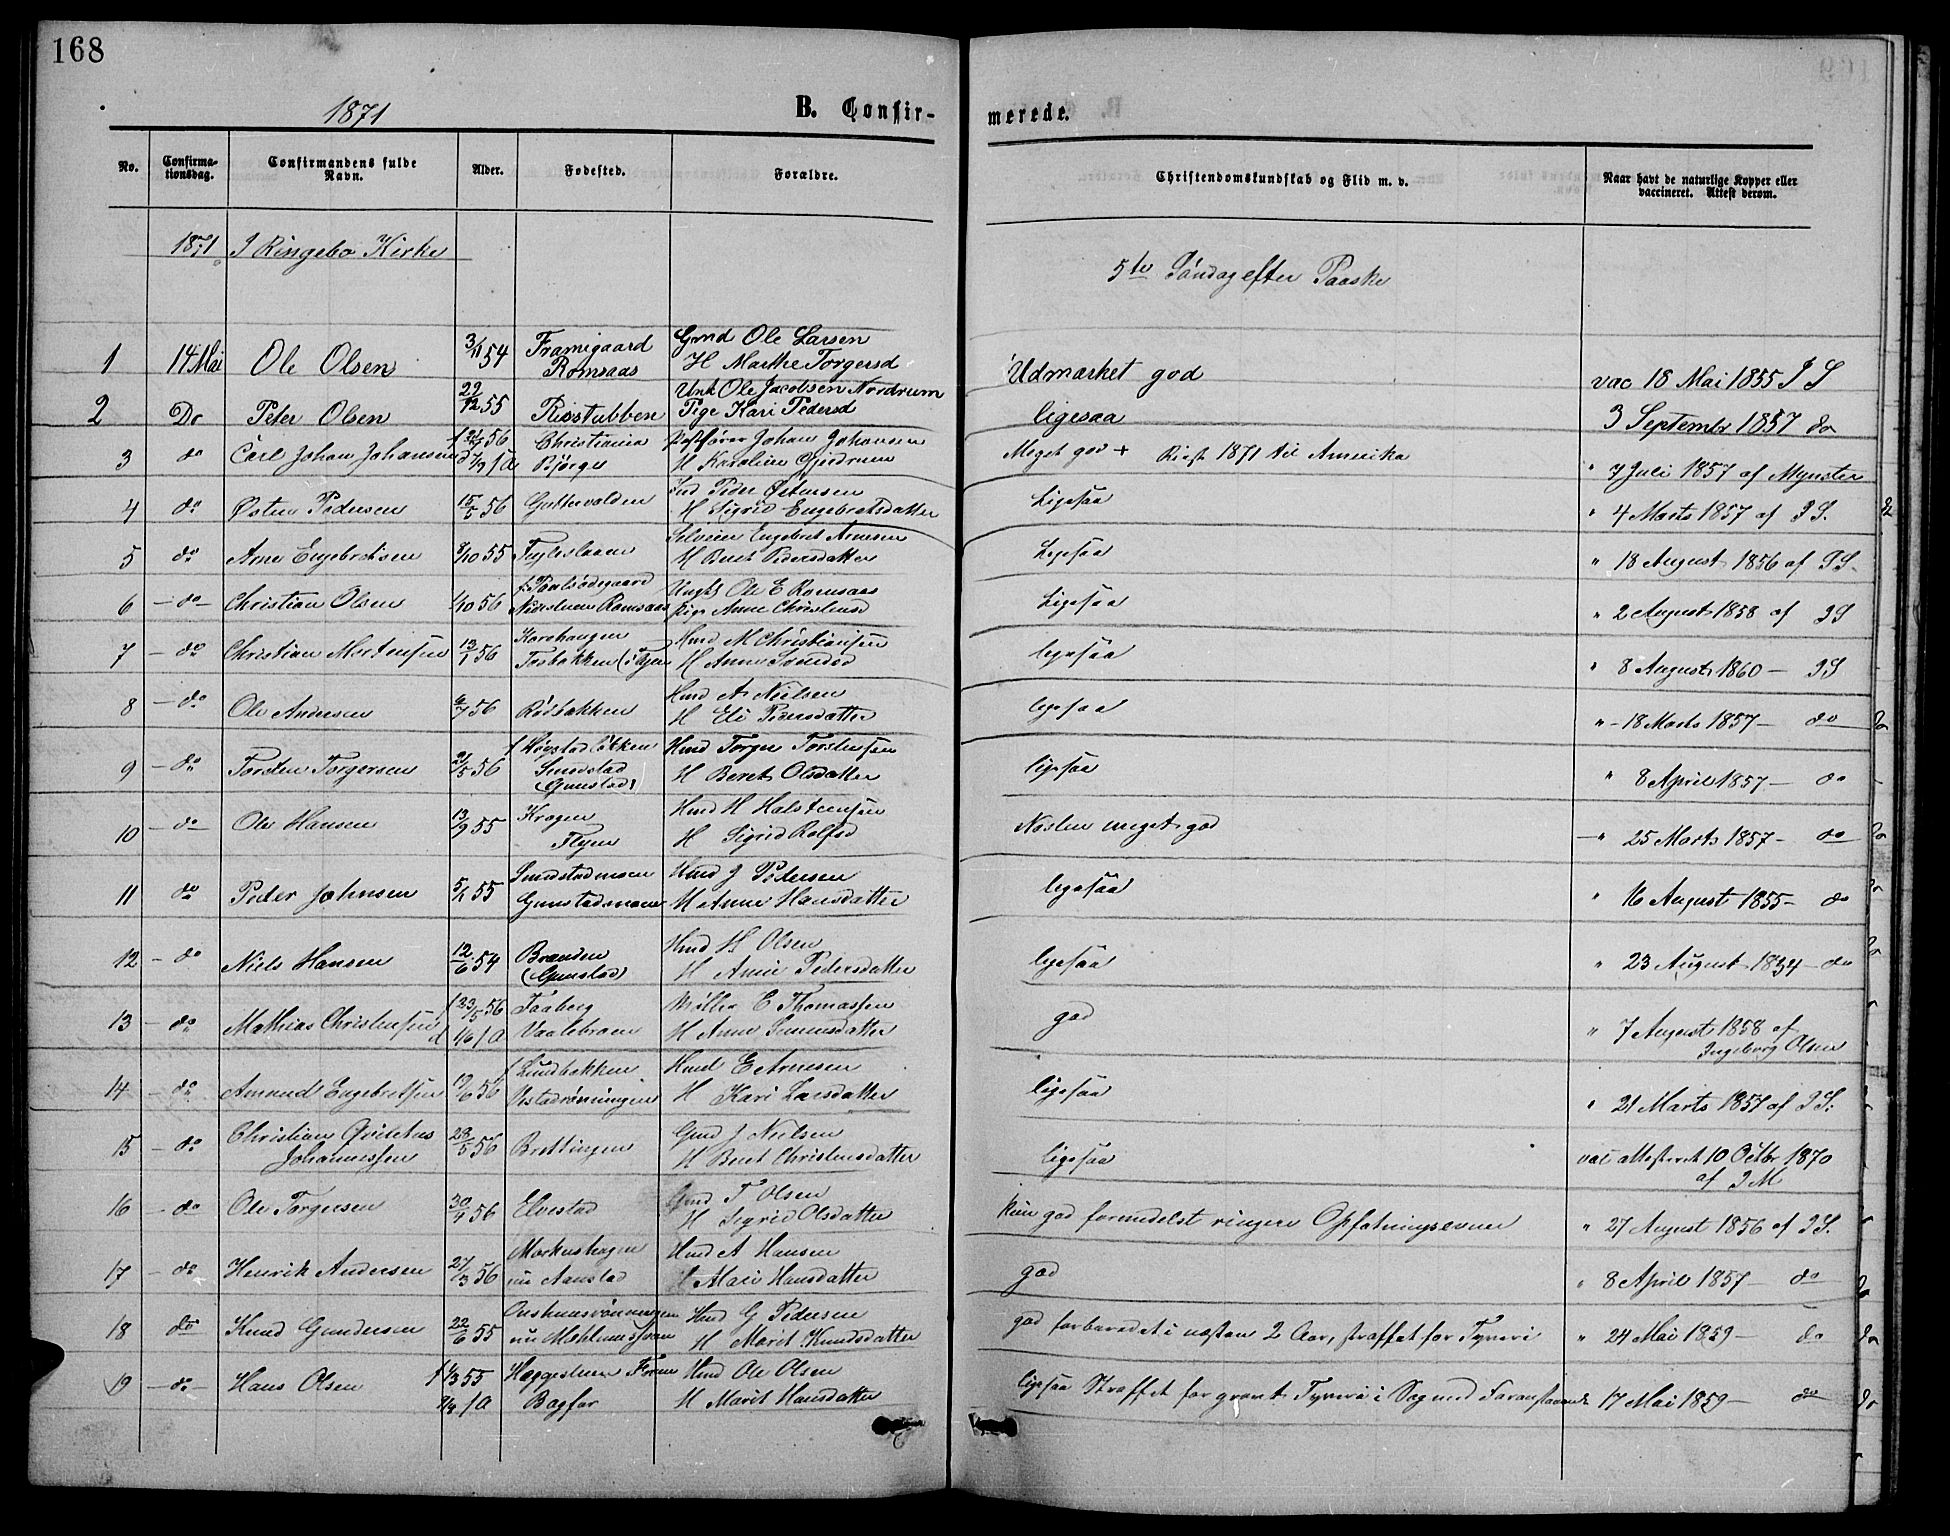 168
1871
B. Confir-
merede.
No.
Confirma-
tionsdag.
Confirmandens fulde
Navn.
Alder.
Fødested.
Forældre.
Christendomskundskab og Flid m. v.
Naar havt de naturlige Kopper eller
vaccineret. Attest derom.
1871 I Ringebo Kirke
5te Søndag efter Paaske
1 14 Mai Ole Olsen 3/11 54 Framigaard Romsaas Gmd Ole Larsen
H Marthe Torgersd
Udmærket god
vac 18 Mai 1855 I S
2 Do Peter Olsen 22/12 55 Risstubben Unk Ole Jacobsen Nordrum
Pige Kari Pedersd
ligesaa
3 September 1857 do
3 do Carl Johan Johansen 56 Christiania Johan Johansen
Bjørge H Karoline Gjerdrum
Meget god + Reist 1871 til Amerika
" 7 Juli 1857 af Mynster
4 do Østen Pedersen 15/5 56 Peder Østensen
H Sigrid Engebretsdatter
Ligesaa
" 4 Marts 1857 af I S.
5 do Arne Engebretsen 8/10 55 Engebret Arnesen
H Beret Pedersdatter
Ligesaa
" 18 August 1856 af I S.
6 - do - Christian Olsen 1/10 56 Romsaas Ole E Romsaas
Pige Anne Christensd
Ligesaa
" 2 August 1858 af I S
7 - do Christian Mortensen 13/1 56 Hmd M Christiansen
H Anne
ligesaa
" 8 August 1860 - I S
8 - do Ole Andersen 6/7 56 Rødbakken Hmd A Nielsen
H Eli Pedersdatter
ligesaa
" - 18 Marts 1857 - do
9 - do Torsten Torgersen 21/5 56 f Høystadløkken
Sundstad
(Gunstad)
Hmd Torger Torstensen
H Beret Olsdatter
ligesaa
" 8 April 1857 - do
10 - do Ole Hansen 13/9 55 Krogen
Flyen
Hmd H Halstensen
H Sigrid Rolfsd
Næsten meget god
- " 25 Marts 1857 - do
11 do Peder Johnsen 5/1 55 Sundstadmoen
Gunstadmoen
Hmd J Pedersen
H Anne Hansdatter
ligesaa
" 16 August 1855 - do
12 - do Niels Hansen 12/6 54 Brænden
(Gunstad)
Hmd H Olsen
H Anne Pedersdatter
ligesaa
" 23 August 1854 - do
13 - do Mathias Christensen f 23/5 56 Faaberg
Vaalebroen
Møller C Thomassen
H Anne Simensdatter
god
" 7 August 1858 af
Ingeborg Olsen
14 - do Amund Engebretsen 19/6 56 f Lundbakken
Hmd E Arnesen
H Kari Larsdatter
ligesaa
" 21 Marts 1857 af I S.
15 - do Christian
Johannessen
28/5 56 Brettingen Gmd J Nielsen
H Beret Christensdatter
ligesaa
vac attesteret 10 Octbr 1870
af I M
16 - do Ole Torgersen 56 Elvestad Gmd T Olsen
H Sigrid Olsdatter
Kun god formedelst ringere Opfatningsevne
" 27 August 1856 af I S.
17 - do Henrik Andersen 56 Aanstad Hmd A Hansen
H Mari Hansdatter
god
" 8 April 1857 - do
18 do Knud Gundersen 22/6 55 Hmd G Pedersen
H Marit Knudsdatter
god forberedet i næsten 2 Aar, straffet for Tyveri
" 24 Mai 1859 - do
19 - do - Hans Olsen 55 Fron
Bagfar
Hmd Ole Olsen
H Marit Hansdatter
ligesaa Straffet for grovt Tyveri i Sag med Foranstaaende
17 Mai 1859 - do